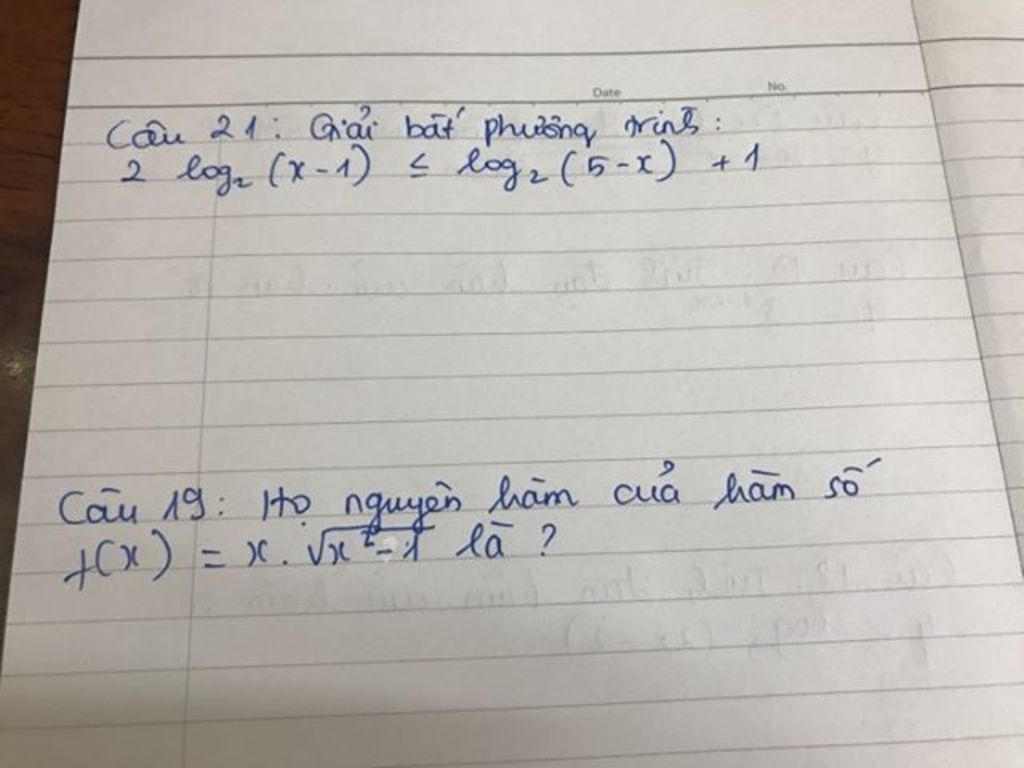 Date No.
Câu 21: Giải bất phương trình:
2 log₂(x-1) ≤ log₂(5-x) +1
Câu 19: Họ nguyên hàm của hàm số
f(x) = x.√x²-1 là ?